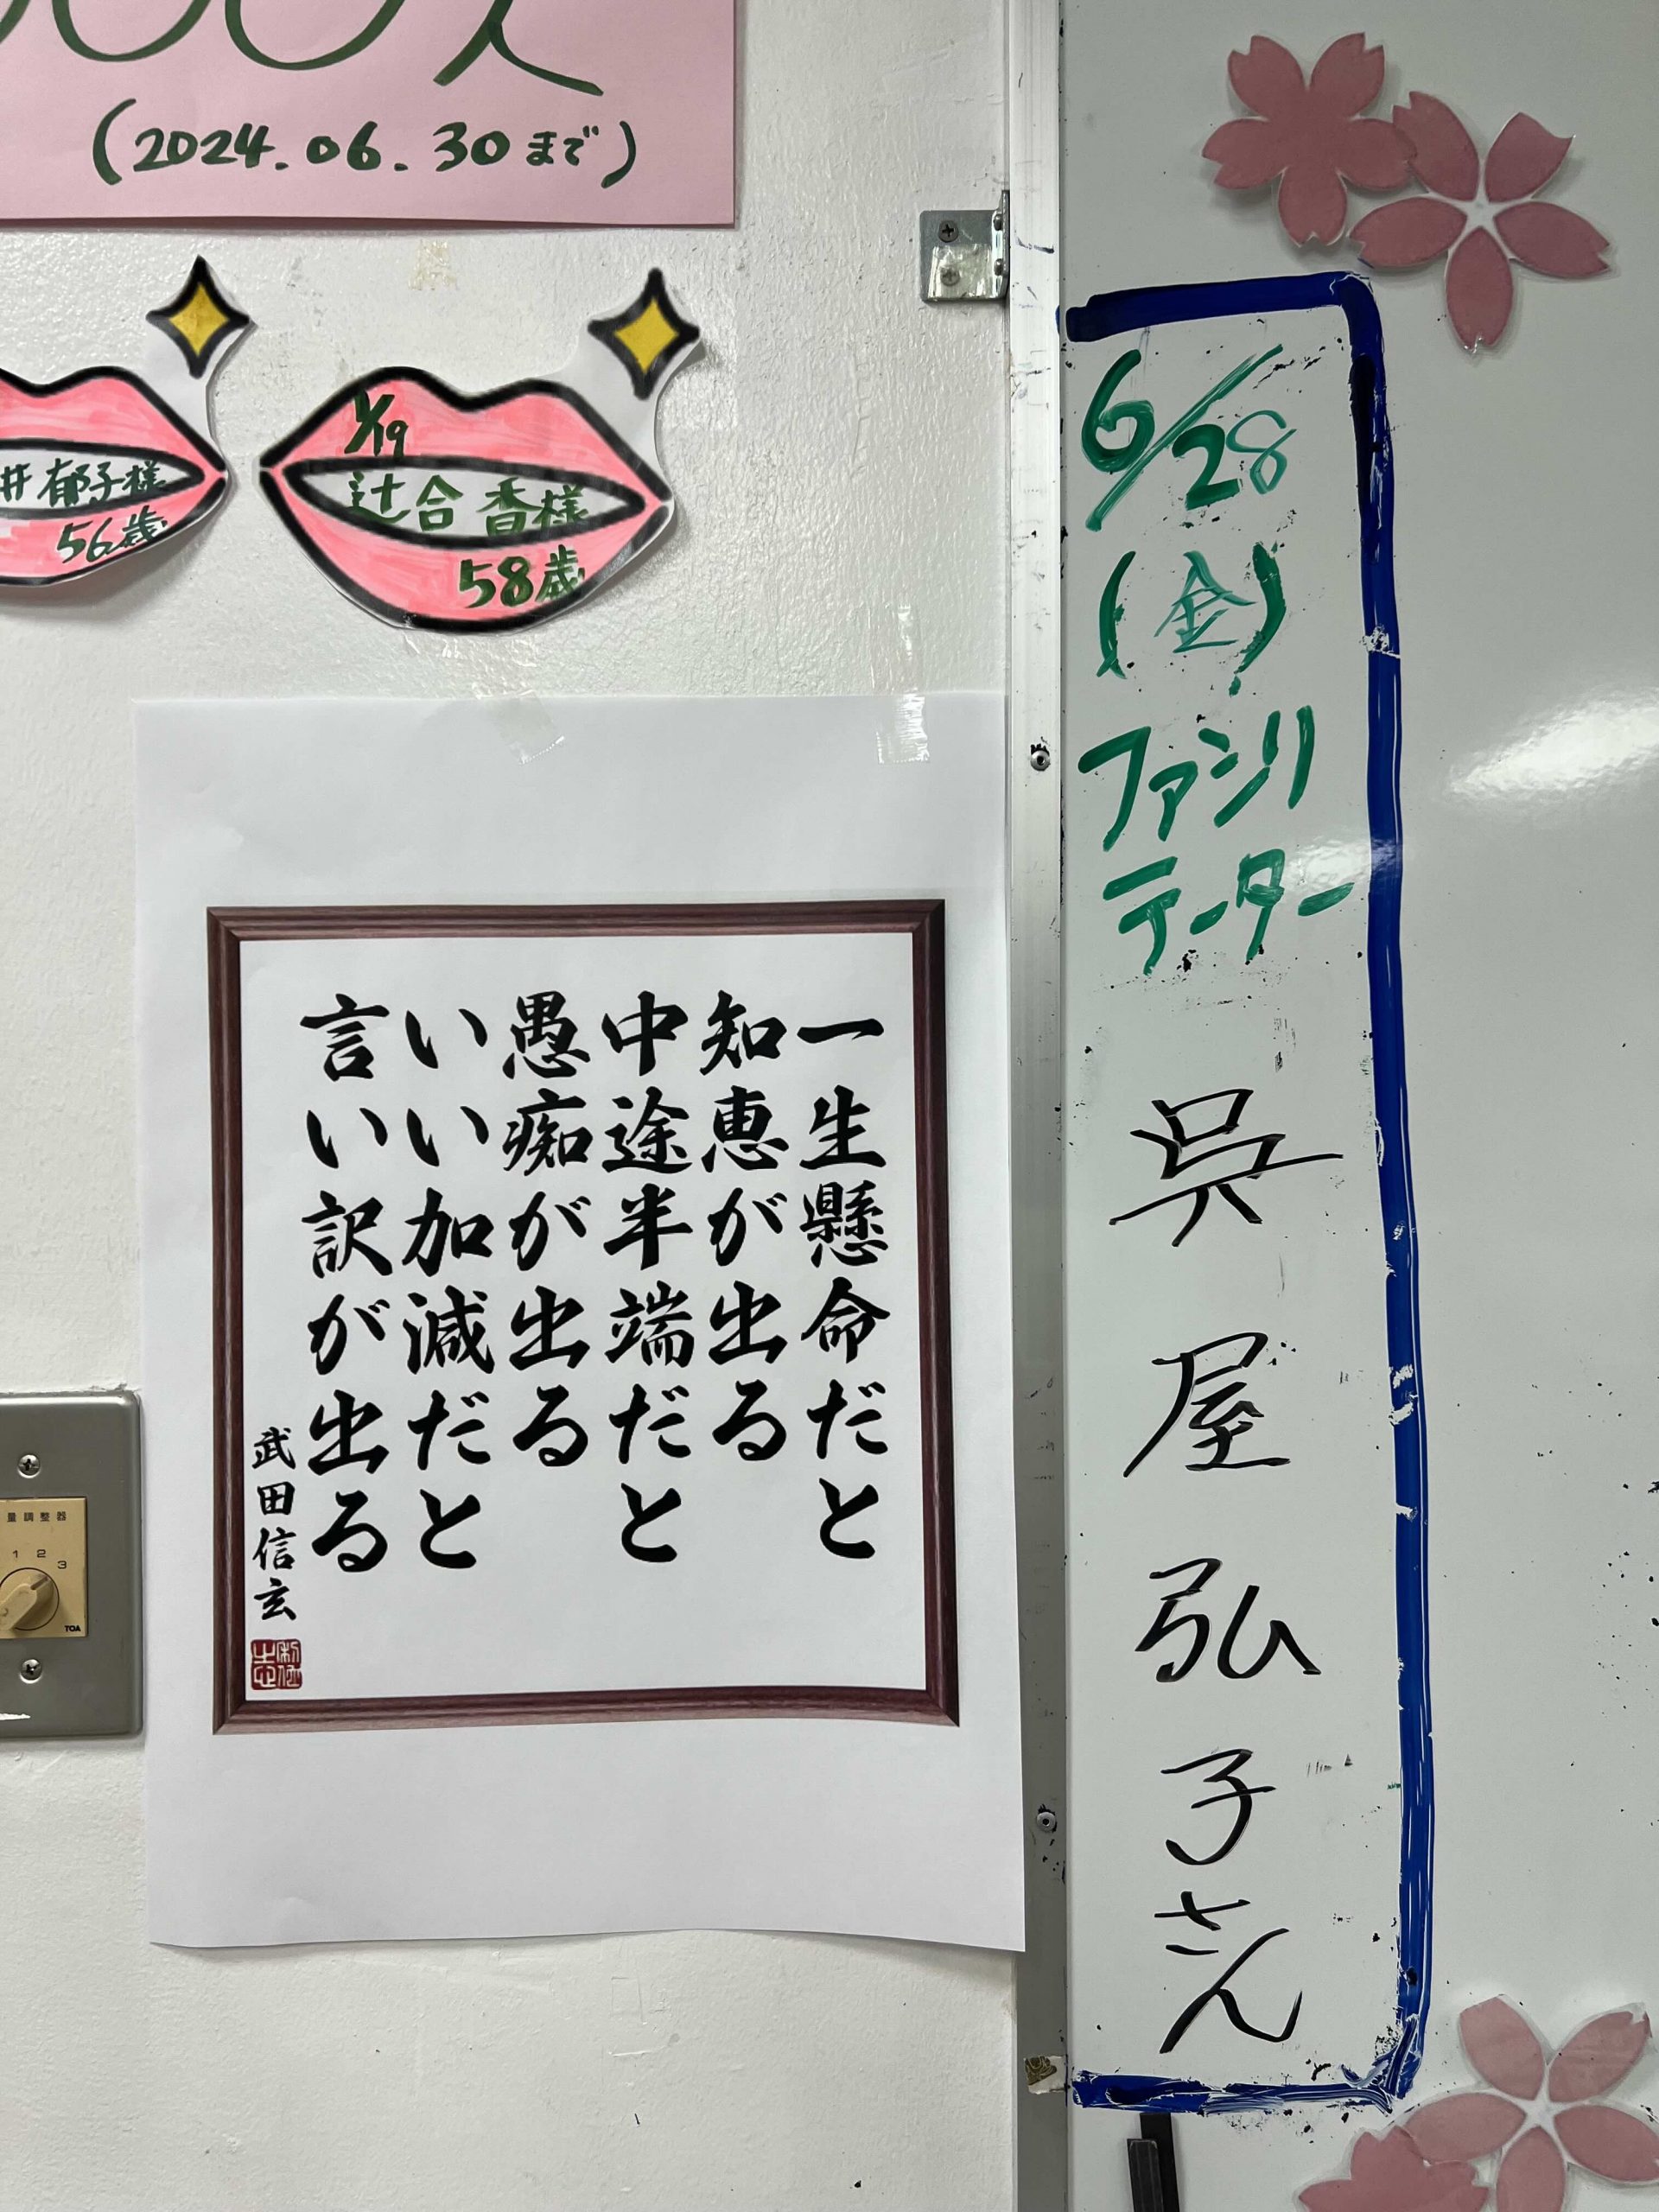 人
(2024.06.30まで)
井 郁子様
56歳
1/19
辻合 香様
58歳
一生懸命だと
知恵が出る
中途半端だと
愚痴が出る
いい加減だと
言い訳が出る
武田信玄
量調整器
1 2 3
TOA
6/28
(金)
ファシリ
テーター
呉屋弘子さん